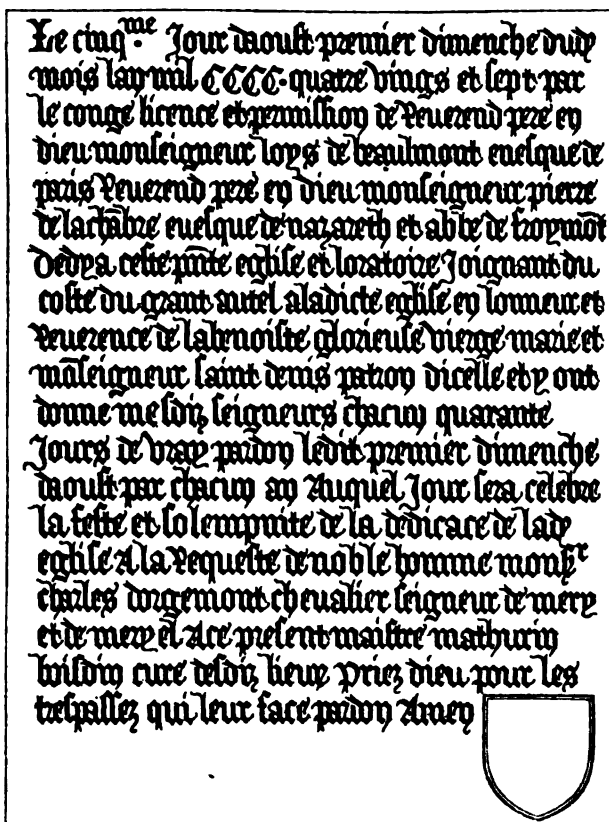 Le cinq.me Jour daoust premier dimenche dudt
mois lan mil CCCC. quatre vings et sept par
le conge licence et permission de Reuerend pere en
dieu monseigneur loys de beaulmont euesque de
paris Reuerend pere en dieu monseigneur pierre
de lachābre euesque de nazareth et abbe de froymōt
Dedya ceste pn̄te eglise et loratoire Joignant du
coste du grant autel aladicte eglise en lonneur et
Reuerence de labenoiste glorieuse vierge marie et
mōseigneur saint denis patron dicelle et y ont
donne mesdiz seigneurs chacun quarante
Jours de vray pardon ledit premier dimenche
daoust par chacun an Auquel Jour sera celebre
la feste et solempnite de la dedicace de lade
eglise A la Requeste de noble homme monsr
charles dorgemont cheualier seigneur de mery
et de mery el Ace present maistre mathurin
boisdin cure desdiz lieux Priez dieu pour les
trespassez qui leur face pardon Amen